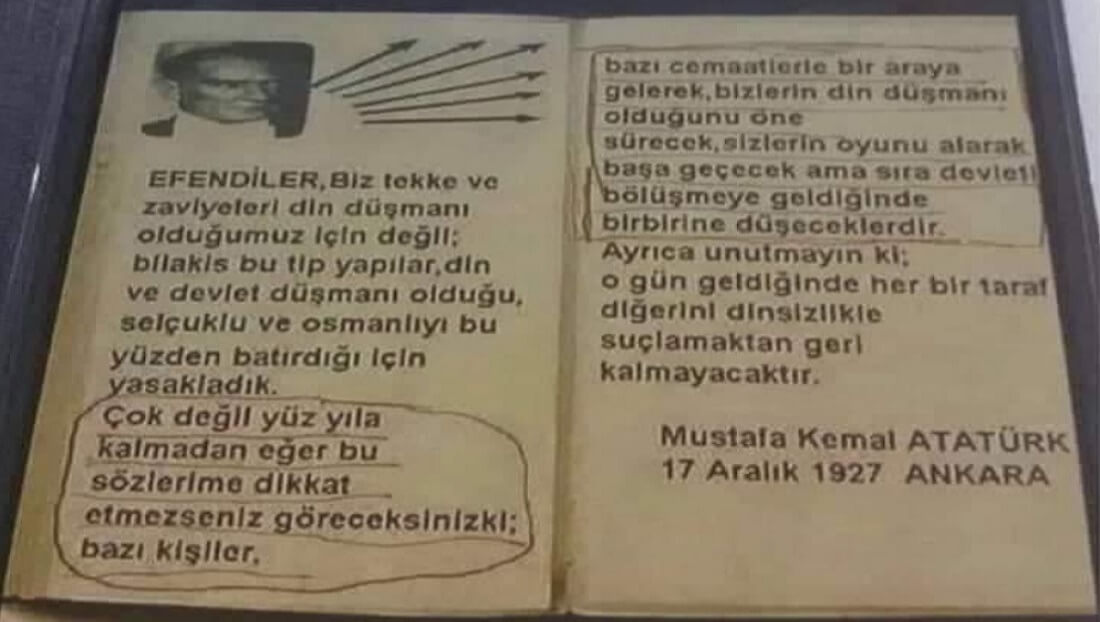 EFENDİLER,Biz tekke ve
zaviyeleri din düşmanı
olduğumuz için değil;
bilakis bu tip yapılar,din
ve devlet düşmanı olduğu,
selçuklu ve osmanlıyı bu
yüzden batırdığı için
yasakladık.
Çok değil yüz yıla
kalmadan eğer bu
sözlerime dikkat
etmezseniz göreceksinizki;
bazı kişiler,
bazı cemaatlerle bir araya
gelerek,bizlerin din düşmanı
olduğunu öne
sürecek,sizlerin oyunu alarak
başa geçecek ama sıra devleti
bölüşmeye geldiğinde
birbirine düşeceklerdir.
Ayrıca unutmayın ki;
o gün geldiğinde her bir taraf
diğerini dinsizlikle
suçlamaktan geri
kalmayacaktır.
Mustafa Kemal ATATÜRK
17 Aralık 1927 ANKARA